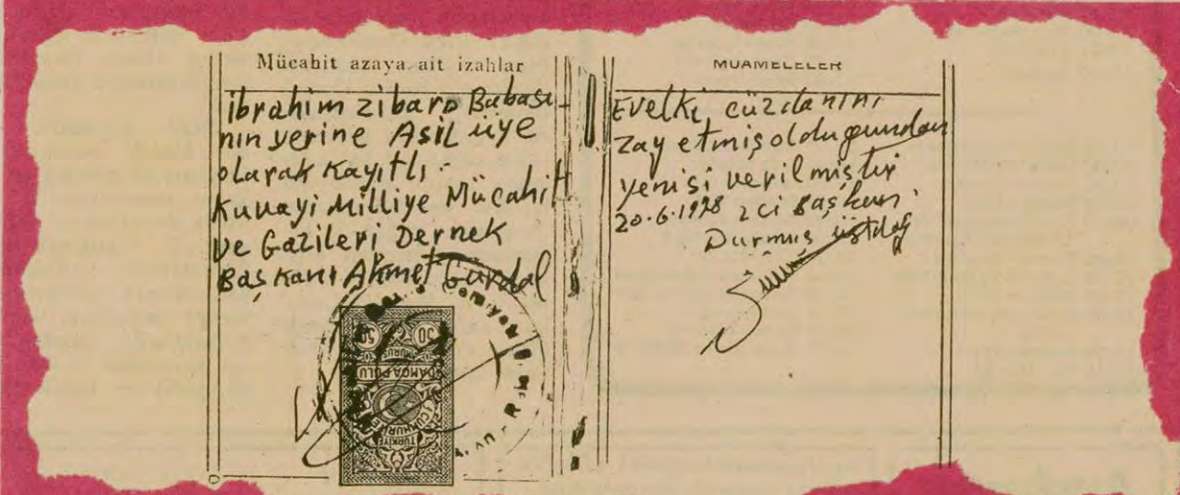 Mücahit azaya ait izahlar
ibrahim zibaro Babası
nın yerine Asil üye
olarak Kayıtlı.
Kuvayi Milliye Mücahit
ve Gazileri Dernek
Başkanı Ahmet Gürdal
50 50
KURUŞ
DAMGA PULU
TÜRKİYE
CUMHURİYETİ
MUAMELELER
Evelki cüzdanını
Zay etmiş olduğundan
yenisi verilmiştir
20.6.1978 2ci Başkan.
Durmuş üstdağ